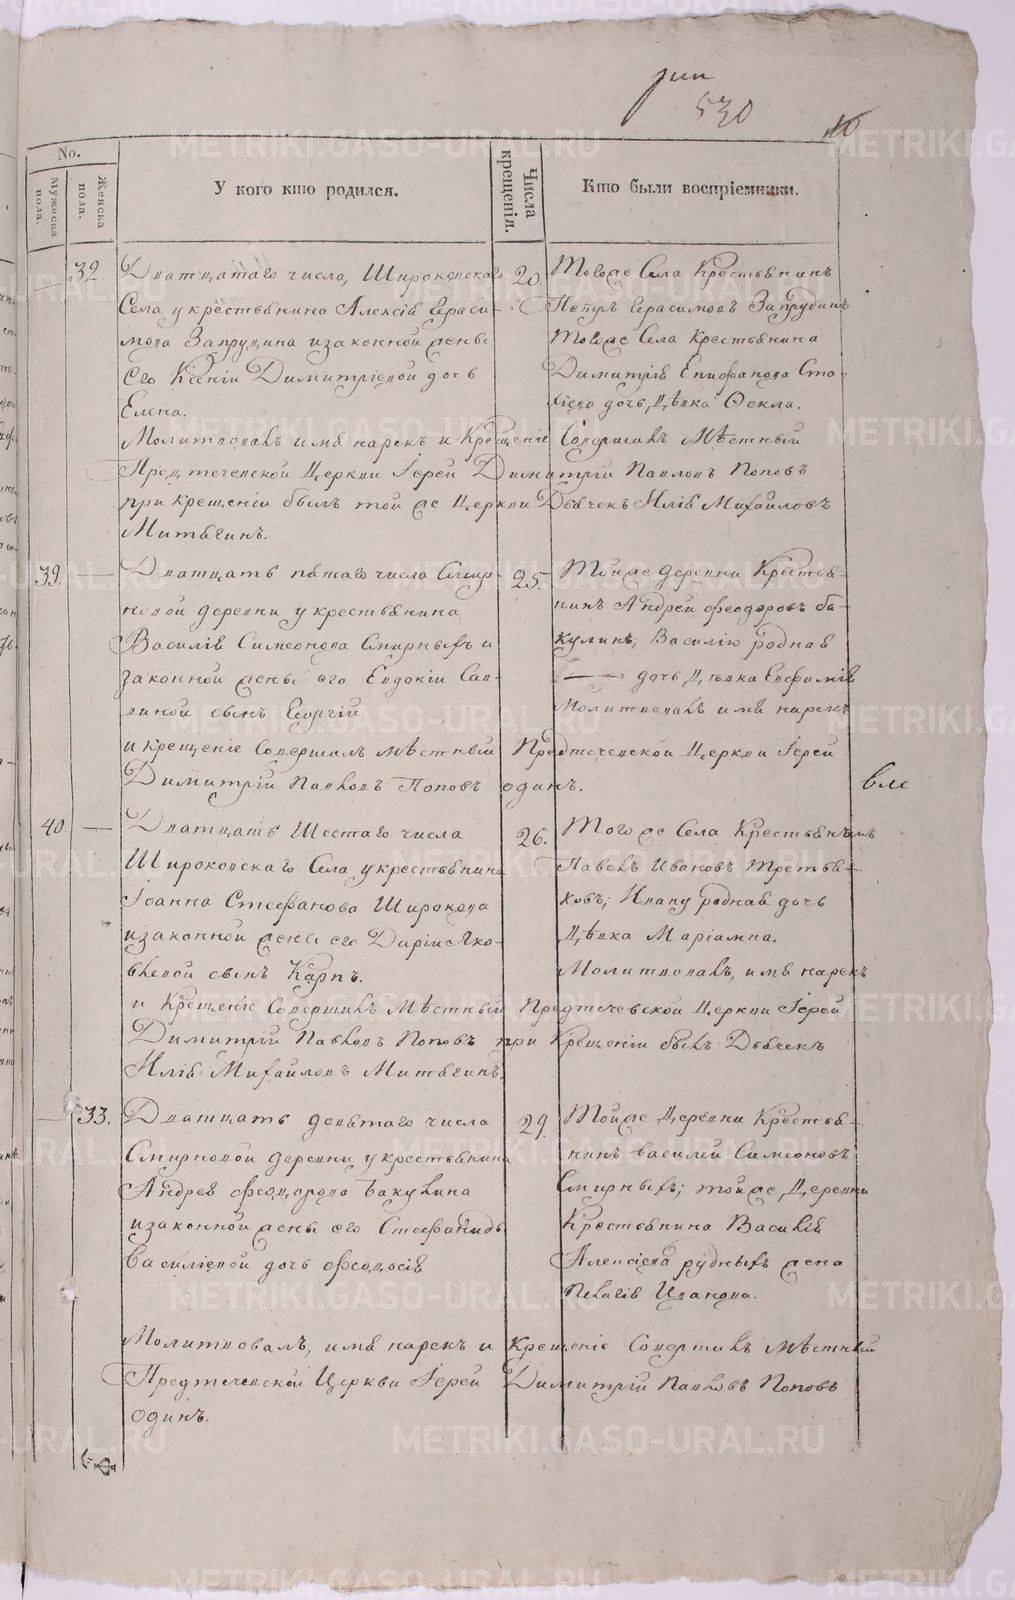 530
No.
Мужеска пола.
Женска пола.
У кого кто родился.
Числа крещенія.
Кто были воспріемники.
32.
Дватцатаго числа, Широковскаго
Села у крестьянина Алексія Ераси-
мова Запрудина изаконной жены
Его Ксеніи Димитріевой дочь
Елена.
20.
Тогоже Села Крестьянинъ
Петръ Герасимовъ Запрудинъ
Тогоже Села Крестьянина
Димитрія Епифанова
дочь, Дѣвка Ѳекла.
Молитвовалъ имя нарекъ и Крещеніе Совершалъ Мѣстный
Предтечевской Церкви Іерей Димитрій Павловъ Поповъ
при Крещеніи былъ той же Церкви Дьячекъ Илія Михайловъ
Митягинъ.
39.
Дватцать пятаго числа Смир-
новой деревни у крестьянина
Василія Симеонова Смирныхъ и
законной жены его Евдокіи Сав-
виной сынъ Георгій
25.
Тойже деревни Крестья-
нинъ Андрей Феодоровъ Ба-
кулинъ; Василію родная
дочь Дѣвка Евфимія
Молитвовалъ имя нарекъ
и крещеніе Совершалъ мѣстный Предтечевской Церкви Іерей
Димитрій Павловъ Поповъ одинъ.
40.
Дватцать Шестаго числа
Широковскаго Села у крестьянина
Іоанна Стефанова Широкова
изаконной жены его Даріи Яко-
влевой сынъ Карпъ.
26.
Того же Села Крестьянинъ
Павелъ Ивановъ Третья-
ковъ; Ивану родная дочь
Дѣвка Маріамна.
Молитвовалъ, имя нарекъ
и Крещеніе Совершилъ Мѣстный Предтечевской Церкви Іерей
Димитрій Павловъ Поповъ при Крещеніи былъ Дьячекъ
Илія Михайловъ Митягинъ.
33.
Дватцать девятаго числа
Смирновой деревни у крестьянина
Андрея Феодорова Бакулина
изаконной жены его Стефаниды
Василіевой дочь Феодосія
29.
Тойже Деревни Крестья-
нинъ Василей Симеоновъ
Смирныхъ; тойже Деревни
Крестьянина Василія
Алексіева Рудныхъ жена
Пелагія Иванова.
Молитвовалъ, имя нарекъ и Крещеніе Совершилъ мѣстный
Предтечевской Церкви Іерей Димитрій Павловъ Поповъ
одинъ.